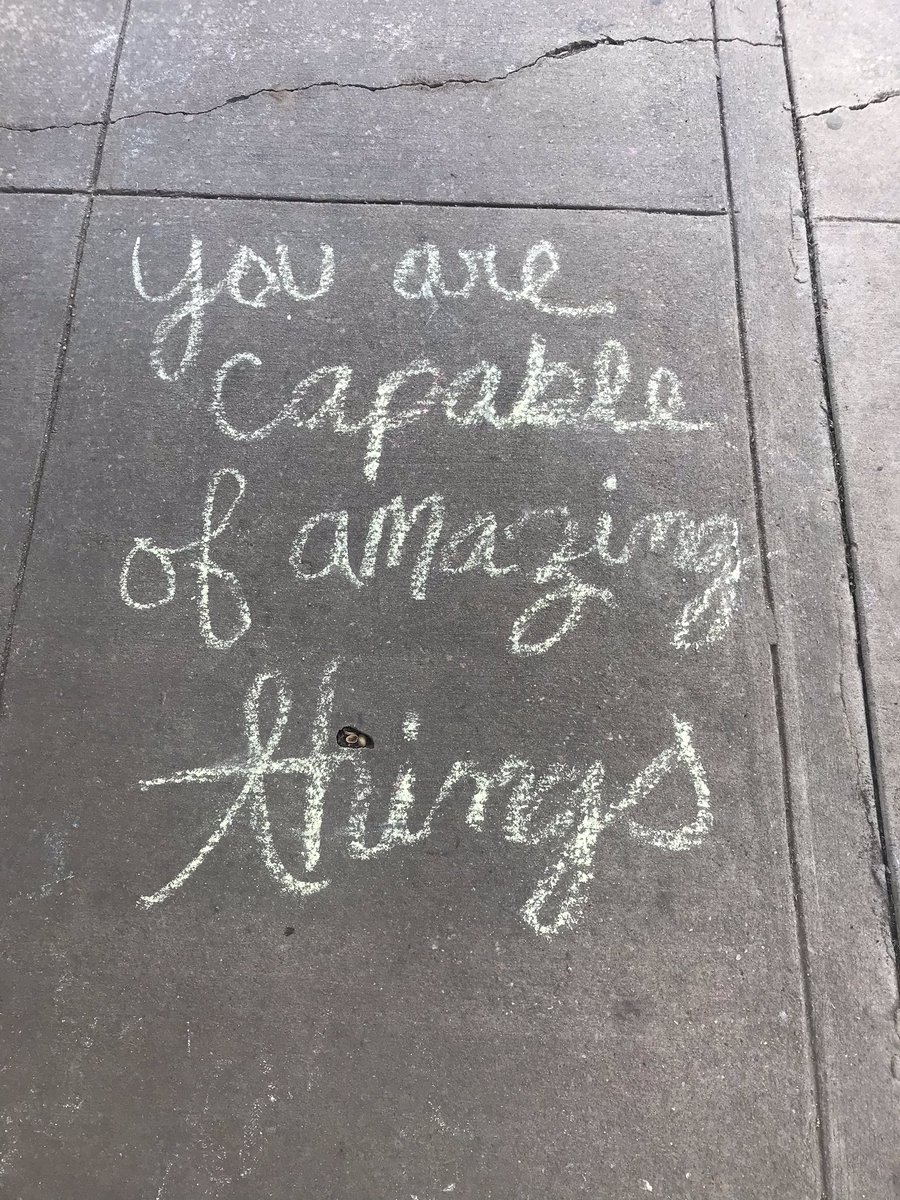 you are
capable
of amazing
things